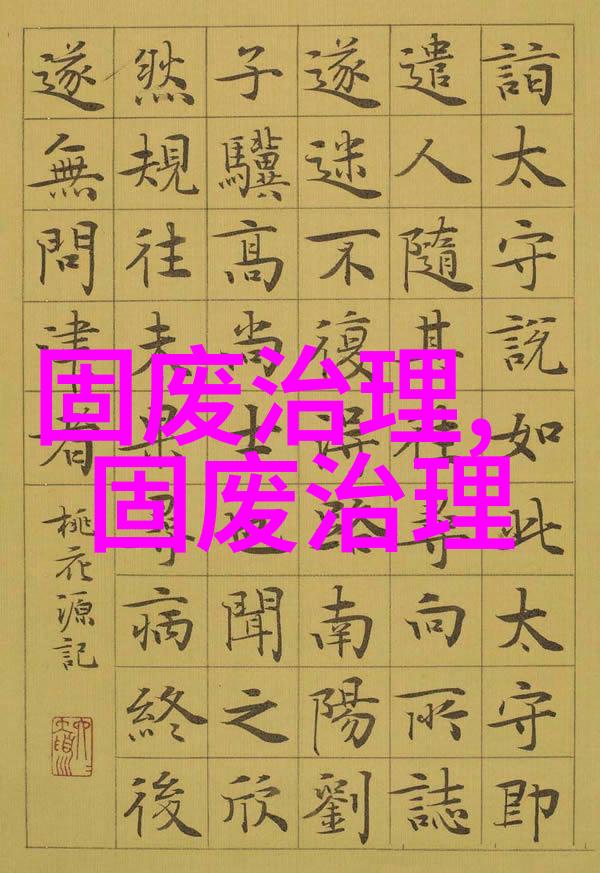 詣太守說如此太守即
遣人隨其往尋向所誌
遂迷不復得路南陽劉
子驥高尚士也聞之欣
然規往未果尋病終後
遂無問津者
桃花源記
固废治理,
固废治理